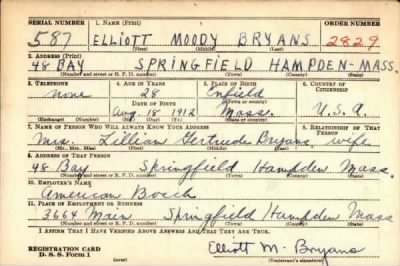 SERIAL NUMBER 1. NAME (Print) ORDER NUMBER
587 ELLIOTT MOODY BRYANS 2829
(First) (Middle) (Last)
2. ADDRESS (Print)
48 BAY SPRINGFIELD HAMPDEN-MASS.
(Number and street or R. F. D. number) (Town) (County) (State)
3. TELEPHONE 4. AGE IN YEARS 5. PLACE OF BIRTH 6. COUNTRY OF CITIZENSHIP
none 28 Enfield
DATE OF BIRTH (Town or county)
Aug. 18 1912 Mass. U.S.A.
(Exchange) (Number) (Mo.) (Day) (Yr.) (State or country)
7. NAME OF PERSON WHO WILL ALWAYS KNOW YOUR ADDRESS 8. RELATIONSHIP OF THAT PERSON
Mrs. Lillian Gertrude Bryans wife
(Mr., Mrs., Miss) (First) (Middle) (Last)
9. ADDRESS OF THAT PERSON
48 Bay Springfield Hampden Mass.
(Number and street or R. F. D. number) (Town) (County) (State)
10. EMPLOYER'S NAME
American Bosch
11. PLACE OF EMPLOYMENT OR BUSINESS
3664 Main Springfield Hampden Mass
(Number and street or R. F. D. number) (Town) (County) (State)
I AFFIRM THAT I HAVE VERIFIED ABOVE ANSWERS AND THAT THEY ARE TRUE.
REGISTRATION CARD
D. S. S. Form 1
Elliott M. Bryans
(Registrant's signature)